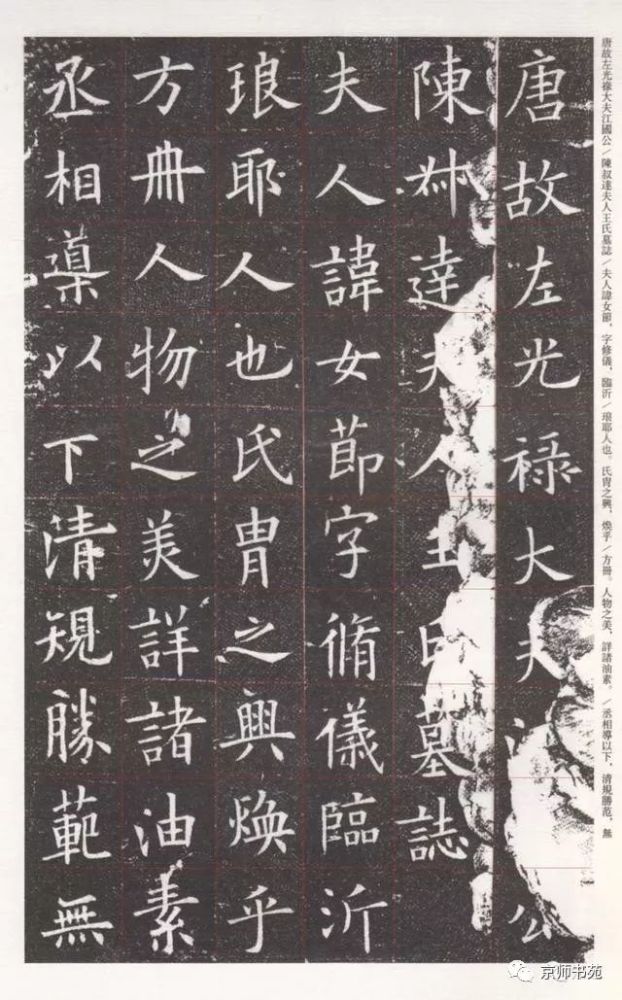 唐故左光祿大夫江國公／陳叔達夫人王氏墓誌／夫人諱女節，字修儀，臨沂／琅耶人也。氏胄之興，煥乎／方冊。人物之美，詳諸油素。／丞相導以下，清規勝范，無
唐故左光禄大夫公
陳叔達夫人王氏墓誌
夫人諱女節字脩儀臨沂
琅耶人也氏胄之興焕乎
方冊人物之美詳諸油素
丞相導以下清規勝範無
京师书苑